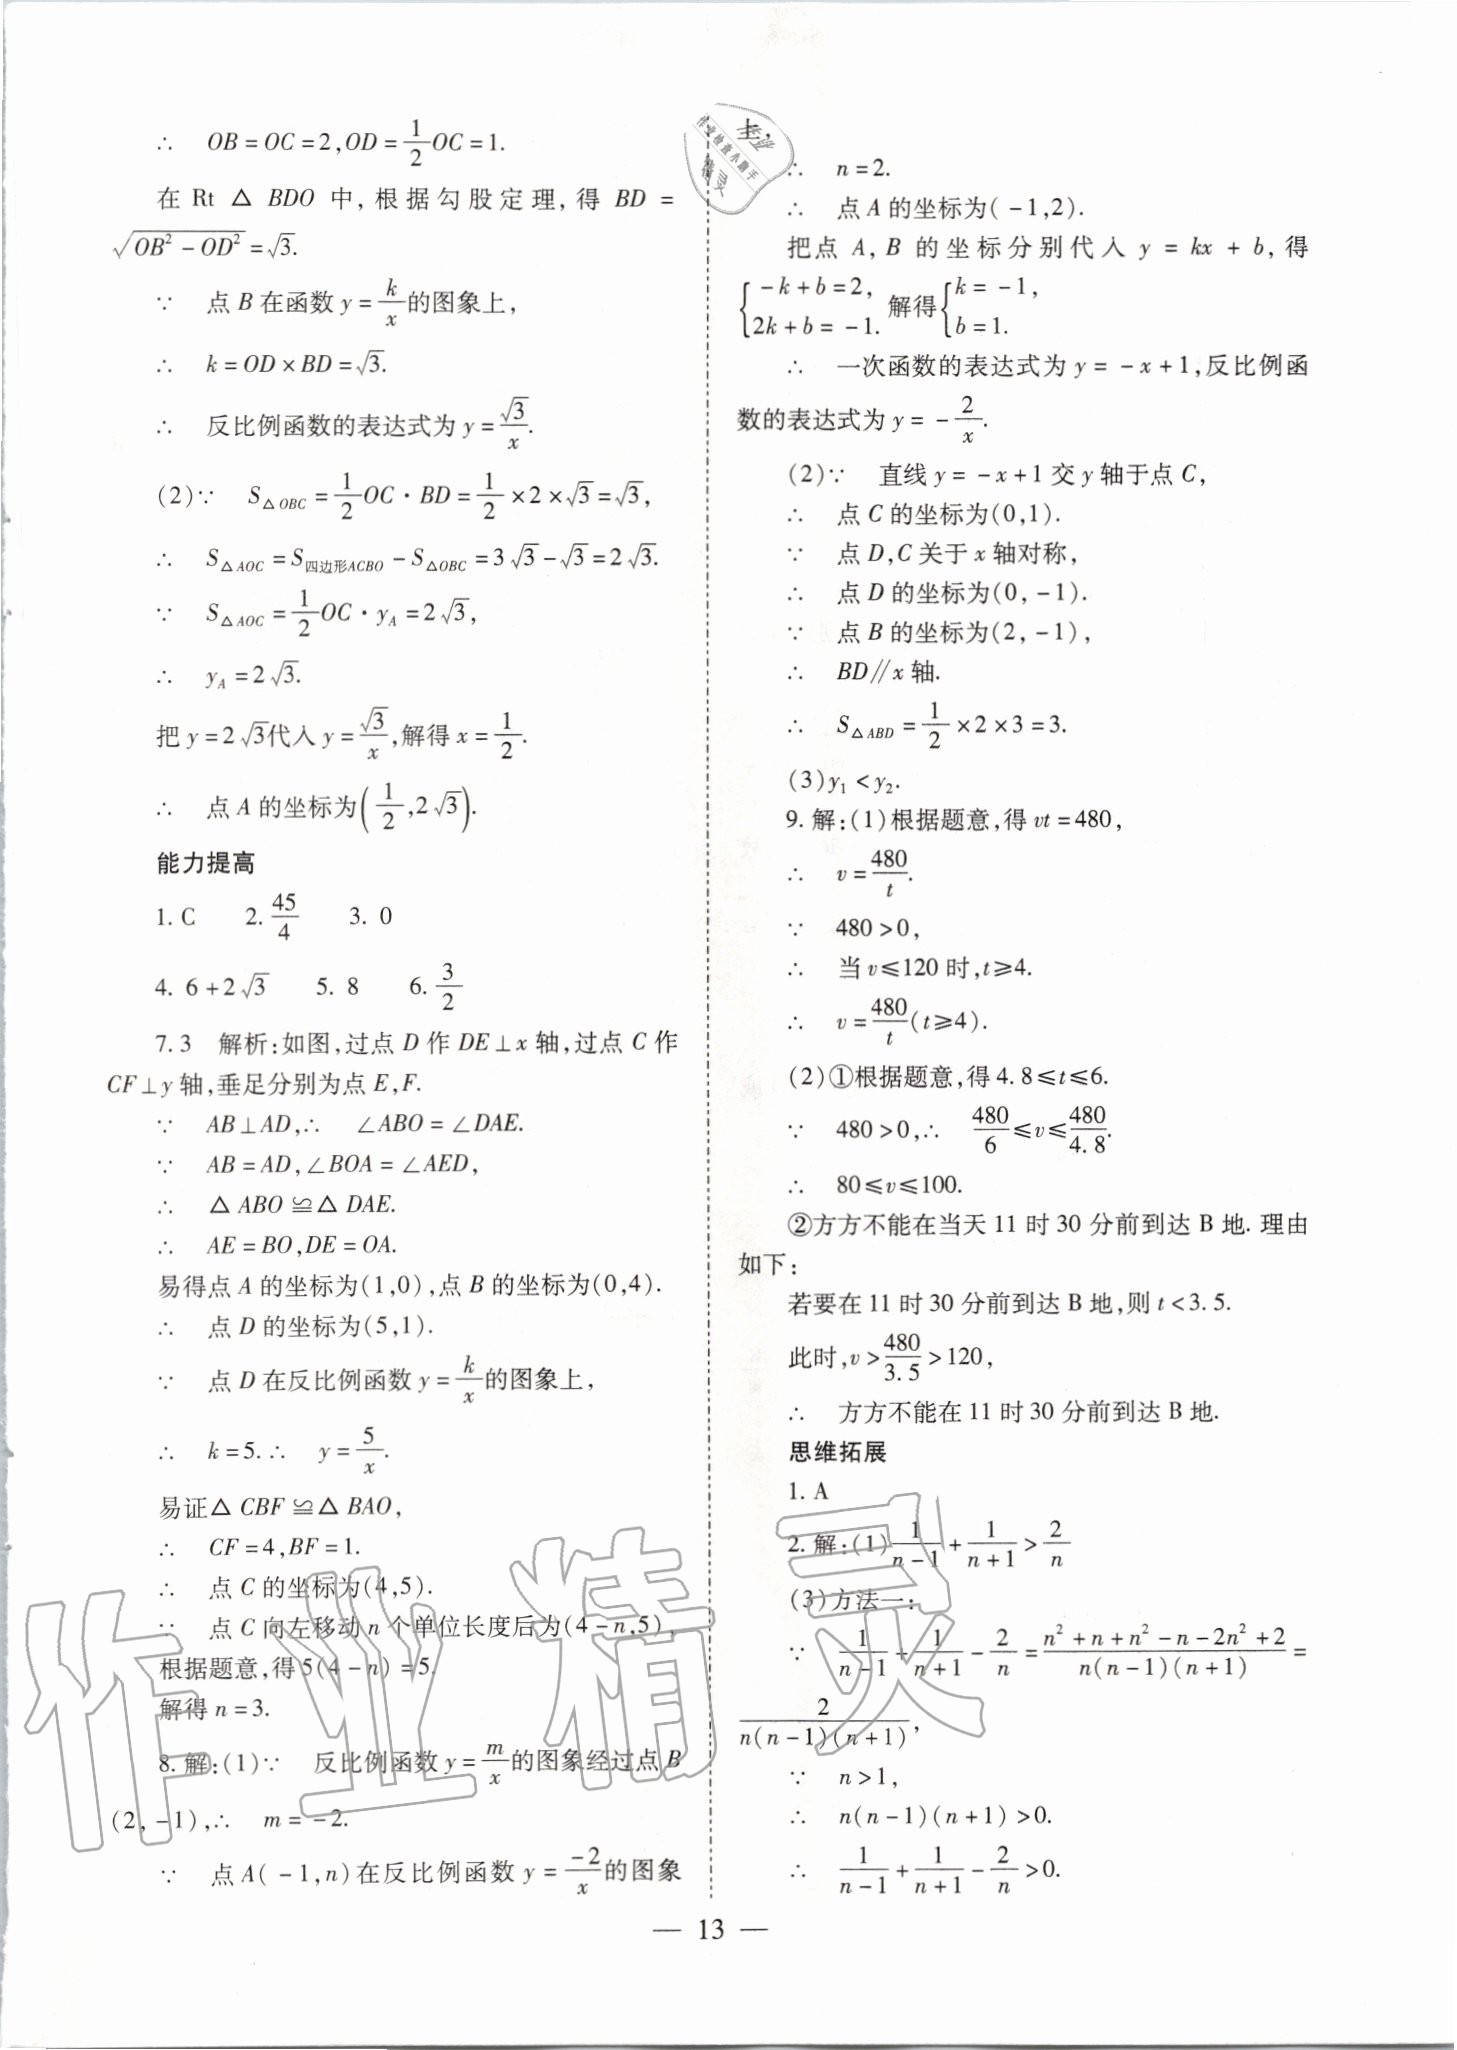 ∴ OB=OC=2,OD=1/2OC=1.
在 Rt △ BDO 中,根据勾股定理,得 BD =
√(OB²-OD²)=√3.
∵ 点 B 在函数 y=k/x的图象上,
∴ k=OD×BD=√3.
∴ 反比例函数的表达式为 y=√3/x.
(2)∵ S△OBC=1/2OC·BD=1/2×2×√3=√3,
∴ S△AOC=S四边形ACBO-S△OBC=3√3-√3=2√3.
∵ S△AOC=1/2OC·yA=2√3,
∴ yA=2√3.
把 y=2√3代入 y=√3/x,解得 x=1/2.
∴ 点 A 的坐标为(1/2,2√3).
能力提高
1. C 2. 45/4 3. 0
4. 6+2√3 5. 8 6. 3/2
7. 3 解析:如图,过点 D 作 DE⊥x 轴,过点 C 作
CF⊥y 轴,垂足分别为点 E,F.
∵ AB⊥AD,∴ ∠ABO=∠DAE.
∵ AB=AD,∠BOA=∠AED,
∴ △ABO≌△DAE.
∴ AE=BO,DE=OA.
易得点 A 的坐标为(1,0),点 B 的坐标为(0,4).
∴ 点 D 的坐标为(5,1).
∵ 点 D 在反比例函数 y=k/x的图象上,
∴ k=5.∴ y=5/x.
易证△CBF≌△BAO,
∴ CF=4,BF=1.
∴ 点 C 的坐标为(4,5).
∵ 点 C 向左移动 n 个单位长度后为(4-n,5),
根据题意,得 5(4-n)=5.
解得 n=3.
8. 解:(1)∵ 反比例函数 y=m/x的图象经过点 B
(2,-1),∴ m=-2.
∵ 点 A(-1,n)在反比例函数 y=-2/x的图象
上,
∴ n=2.
∴ 点 A 的坐标为(-1,2).
把点 A,B 的坐标分别代入 y=kx+b,得
{-k+b=2, 2k+b=-1. 解得{k=-1, b=1.
∴ 一次函数的表达式为 y=-x+1,反比例函
数的表达式为 y=-2/x.
(2)∵ 直线 y=-x+1 交 y 轴于点 C,
∴ 点 C 的坐标为(0,1).
∵ 点 D,C 关于 x 轴对称,
∴ 点 D 的坐标为(0,-1).
∵ 点 B 的坐标为(2,-1),
∴ BD∥x 轴.
∴ S△ABD=1/2×2×3=3.
(3)y₁<y₂.
9. 解:(1)根据题意,得 vt=480,
∴ v=480/t.
∵ 480>0,
∴ 当 v≤120 时,t≥4.
∴ v=480/t(t≥4).
(2)①根据题意,得 4.8≤t≤6.
∵ 480>0,∴ 480/6≤v≤480/4.8.
∴ 80≤v≤100.
②方方不能在当天 11 时 30 分前到达 B 地. 理由
如下:
若要在 11 时 30 分前到达 B 地,则 t<3.5.
此时,v>480/3.5>120,
∴ 方方不能在 11 时 30 分前到达 B 地.
思维拓展
1. A
2. 解:(1)1/(n-1)+1/(n+1)>2/n
(3)方法一:
∵ 1/(n-1)+1/(n+1)-2/n=(n²+n+n²-n-2n²+2)/(n(n-1)(n+1))=
2/(n(n-1)(n+1)),
∵ n>1,
∴ n(n-1)(n+1)>0.
∴ 1/(n-1)+1/(n+1)-2/n>0.
— 13 —
作业检查小助手
作业精灵